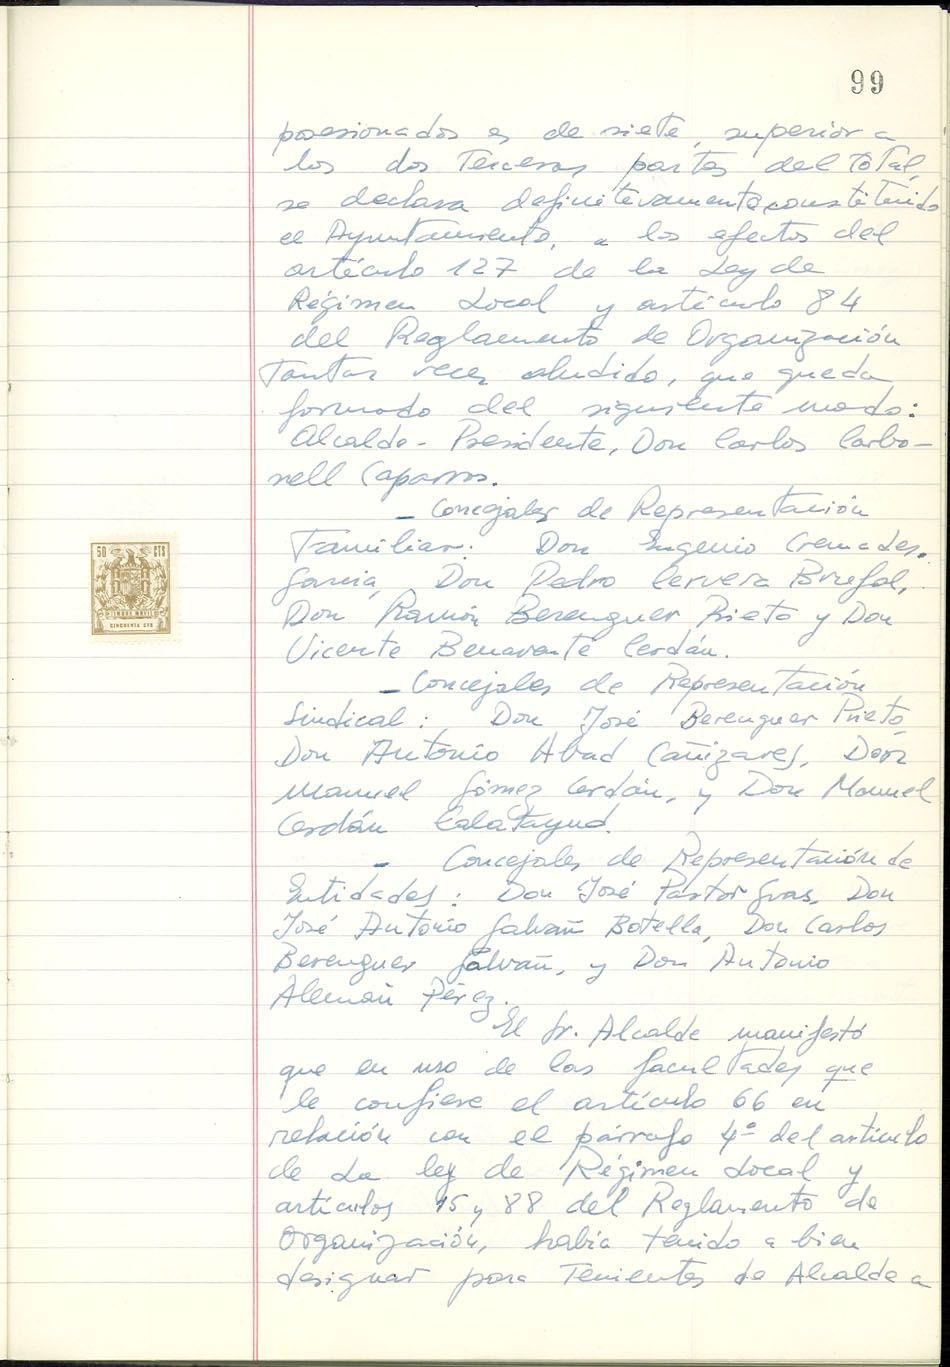 99
posesionados es de siete, superior a
los dos Terceras partes del total,
se declara definitivamente constituido
el Ayuntamiento, a los efectos del
artículo 127 de la Ley de
Régimen Local y artículo 84
del Reglamento de Organización
Tantas veces aludido, que queda
formado del siguiente modo:
Alcalde-Presidente, Don Carlos Carbo-
nell Caparros.
- Concejales de Representación
Familiar: Don Eugenio Cremades
García, Don Pedro Cervera Brufal,
Don Ramón Berenguer Prieto y Don
Vicente Benavente Cerdán.
- Concejales de Representación
Sindical: Don José Berenguer Prieto,
Don Antonio Abad Cañizares, Don
Manuel Gómez Cerdán, y Don Manuel
Cerdán Calatayud.
- Concejales de Representación de
Entidades: Don José Pastor Gras, Don
José Antonio Galvañ Botella, Don Carlos
Berenguer Galvañ, y Don Antonio
Alemañ Pérez.
El Sr. Alcalde manifestó
que en uso de las facultades que
le confiere el artículo 66 en
relación con el párrafo 4º del artículo
de La ley de Régimen Local y
artículos 15 y 88 del Reglamento de
Organización, había tenido a bien
designar para Tenientes de Alcalde a
50 CTS
TIMBRE MOVIL
CINCUENTA CTS